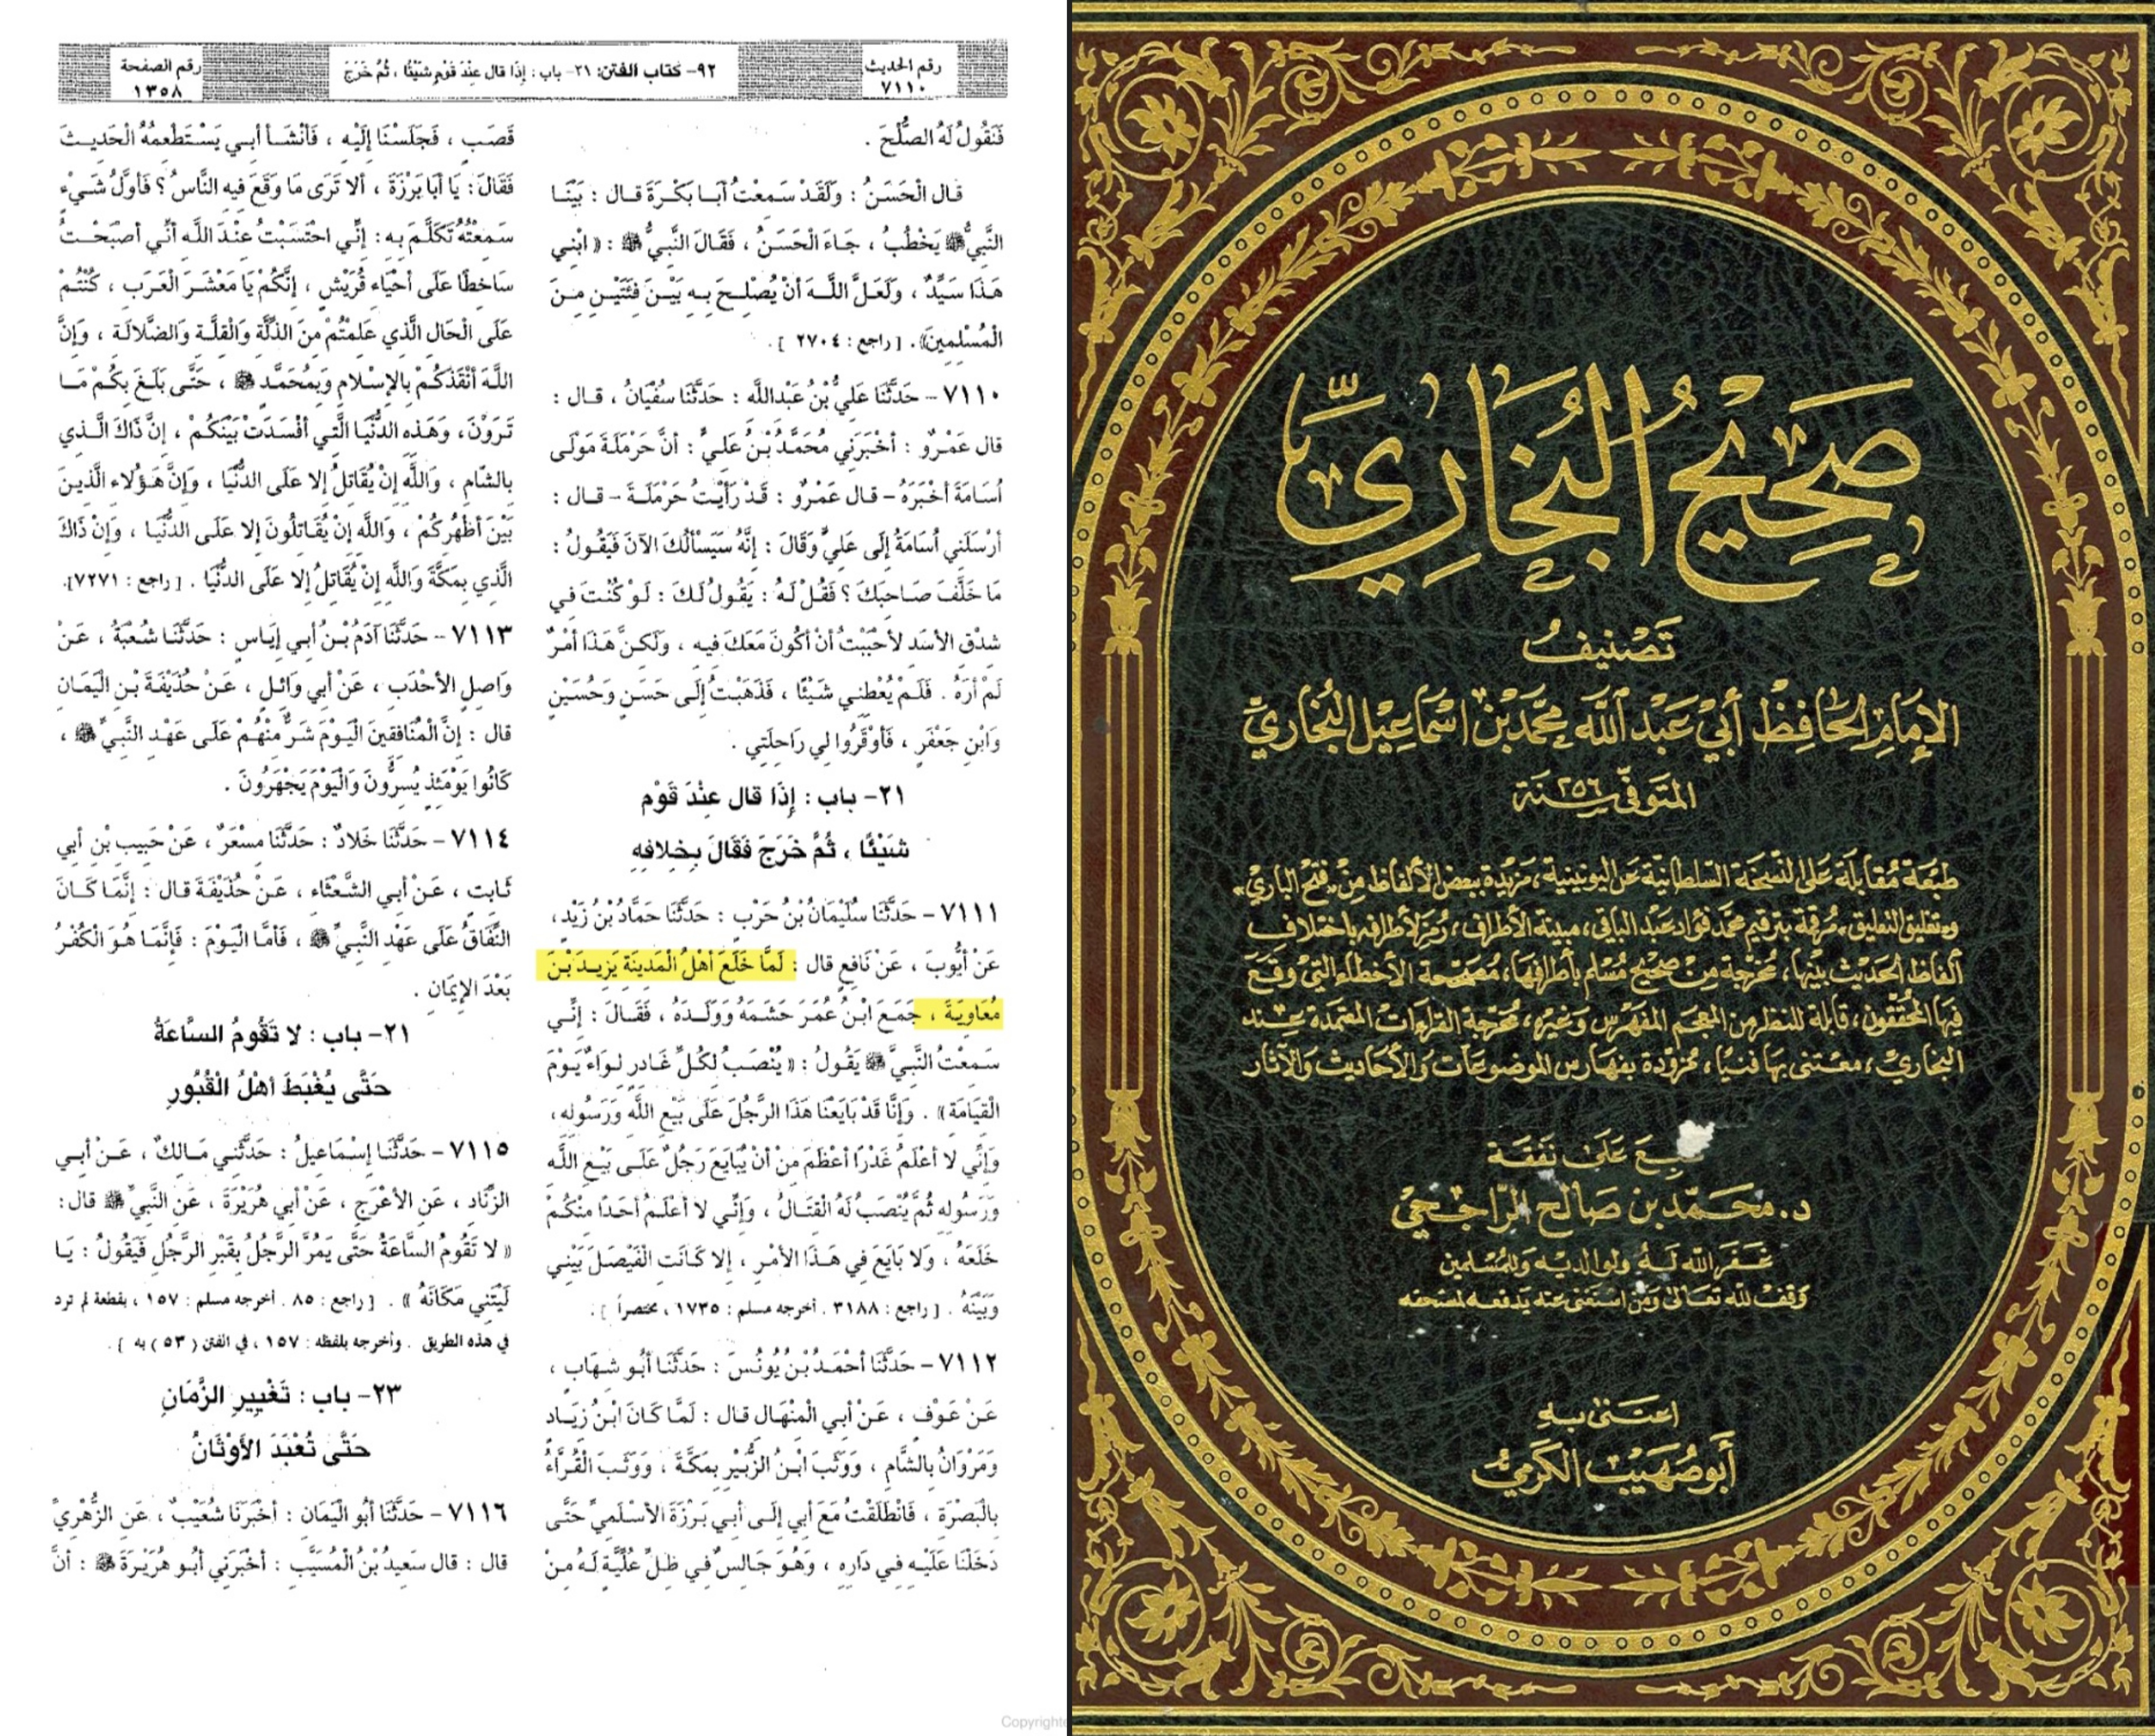 رقم الحديث
٧١١٠
٩٢- كتاب الفتن: ٢١- باب : إِذَا قال عِنْدَ قَوْمٍ شَيْئًا ، ثُمَّ خَرَجَ
رقم الصفحة
١٣٥٨
فَنَقُولُ لَهُ الصُّلْحَ .
قال الْحَسَنُ : وَلَقَدْ سَمِعْتُ أَبَا بَكْرَةَ قال : بَيْنَا
النَّبِيُّ ﷺ يَخْطُبُ ، جَاءَ الْحَسَنُ ، فَقَالَ النَّبِيُّ ﷺ : « ابْنِي
هَذَا سَيِّدٌ ، وَلَعَلَّ اللَّهَ أَنْ يُصْلِحَ بِهِ بَيْنَ فِئَتَيْنِ مِنَ
الْمُسْلِمِينَ» . [ راجع : ٢٧٠٤ ] .
٧١١٠ - حَدَّثَنَا عَلِيُّ بْنُ عَبْدِاللَّهِ : حَدَّثَنَا سُفْيَانُ ، قال :
قال عَمْرٌو : أخْبَرَنِي مُحَمَّدُ بْنُ عَلِيٍّ : أنَّ حَرْمَلَةَ مَوْلَى
أُسَامَةَ أخْبَرَهُ - قال عَمْرٌو : قَدْ رَأيْتُ حَرْمَلَةَ - قال :
أرْسَلَنِي أُسَامَةُ إِلَى عَلِيٍّ وَقَالَ : إِنَّهُ سَيَسْألُكَ الآنَ فَيَقُولُ :
مَا خَلَّفَ صَاحِبَكَ ؟ فَقُلْ لَهُ : يَقُولُ لَكَ : لَوْ كُنْتَ فِي
شِدْقِ الأسَدِ لأحْبَبْتُ أنْ أكُونَ مَعَكَ فِيهِ ، وَلَكِنَّ هَذَا أمْرٌ
لَمْ أرَهُ . فَلَمْ يُعْطِنِي شَيْئًا ، فَذَهَبْتُ إِلَى حَسَنٍ وَحُسَيْنٍ
وَابْنِ جَعْفَرٍ ، فَأوْقَرُوا لِي رَاحِلَتِي .
٢١- باب : إِذَا قال عِنْدَ قَوْمٍ
شَيْئًا ، ثُمَّ خَرَجَ فَقَالَ بِخِلافِهِ
٧١١١ - حَدَّثَنَا سُلَيْمَانُ بْنُ حَرْبٍ : حَدَّثَنَا حَمَّادُ بْنُ زَيْدٍ ،
عَنْ أيُّوبَ ، عَنْ نَافِعٍ قال : لَمَّا خَلَعَ أهْلُ الْمَدِينَةِ يَزِيدَ بْنَ
مُعَاوِيَةَ ، جَمَعَ ابْنُ عُمَرَ حَشَمَهُ وَوَلَدَهُ ، فَقَالَ : إِنِّي
سَمِعْتُ النَّبِيَّ ﷺ يَقُولُ : « يُنْصَبُ لِكُلِّ غَادِرٍ لِوَاءٌ يَوْمَ
الْقِيَامَةِ » . وَإِنَّا قَدْ بَايَعْنَا هَذَا الرَّجُلَ عَلَى بَيْعِ اللَّهِ وَرَسُولِهِ ،
وَإِنِّي لا أعْلَمُ غَدْرًا أعْظَمَ مِنْ أنْ يُبَايَعَ رَجُلٌ عَلَى بَيْعِ اللَّهِ
وَرَسُولِهِ ثُمَّ يُنْصَبُ لَهُ الْقِتَالُ ، وَإِنِّي لا أعْلَمُ أحَدًا مِنْكُمْ
خَلَعَهُ ، وَلا بَايَعَ فِي هَذَا الأمْرِ ، إِلا كَانَتِ الْفَيْصَلَ بَيْنِي
وَبَيْنَهُ . [ راجع : ٣١٨٨ . أخرجه مسلم : ١٧٣٥ ، مختصراً ] .
٧١١٢ - حَدَّثَنَا أحْمَدُ بْنُ يُونُسَ : حَدَّثَنَا أبُو شِهَابٍ ،
عَنْ عَوْفٍ ، عَنْ أبِي الْمِنْهَالِ قال : لَمَّا كَانَ ابْنُ زِيَادٍ
وَمَرْوَانُ بِالشَّامِ ، وَوَثَبَ ابْنُ الزُّبَيْرِ بِمَكَّةَ ، وَوَثَبَ الْقُرَّاءُ
بِالْبَصْرَةِ ، فَانْطَلَقْتُ مَعَ أبِي إِلَى أبِي بَرْزَةَ الأسْلَمِيِّ حَتَّى
دَخَلْنَا عَلَيْهِ فِي دَارِهِ ، وَهُوَ جَالِسٌ فِي ظِلِّ عُلِّيَّةٍ لَهُ مِنْ
قَصَبٍ ، فَجَلَسْنَا إِلَيْهِ ، فَأنْشَأ أبِي يَسْتَطْعِمُهُ الْحَدِيثَ
فَقَالَ : يَا أبَا بَرْزَةَ ، ألا تَرَى مَا وَقَعَ فِيهِ النَّاسُ ؟ فَأوَّلُ شَيْءٍ
سَمِعْتُهُ تَكَلَّمَ بِهِ : إِنِّي احْتَسَبْتُ عِنْدَ اللَّهِ أنِّي أصْبَحْتُ
سَاخِطًا عَلَى أحْيَاءِ قُرَيْشٍ ، إِنَّكُمْ يَا مَعْشَرَ الْعَرَبِ ، كُنْتُمْ
عَلَى الْحَالِ الَّذِي عَلِمْتُمْ مِنَ الذِّلَّةِ وَالْقِلَّةِ وَالضَّلالَةِ ، وَإِنَّ
اللَّهَ أنْقَذَكُمْ بِالإِسْلامِ وَبِمُحَمَّدٍ ﷺ ، حَتَّى بَلَغَ بِكُمْ مَا
تَرَوْنَ ، وَهَذِهِ الدُّنْيَا الَّتِي أفْسَدَتْ بَيْنَكُمْ ، إِنَّ ذَاكَ الَّذِي
بِالشَّامِ ، وَاللَّهِ إِنْ يُقَاتِلُ إِلا عَلَى الدُّنْيَا ، وَإِنَّ هَؤُلاءِ الَّذِينَ
بَيْنَ أظْهُرِكُمْ ، وَاللَّهِ إِنْ يُقَاتِلُونَ إِلا عَلَى الدُّنْيَا ، وَإِنْ ذَاكَ
الَّذِي بِمَكَّةَ وَاللَّهِ إِنْ يُقَاتِلُ إِلا عَلَى الدُّنْيَا . [ راجع : ٧٢٧١].
٧١١٣ - حَدَّثَنَا آدَمُ بْنُ أبِي إِيَاسٍ : حَدَّثَنَا شُعْبَةُ ، عَنْ
وَاصِلٍ الأحْدَبِ ، عَنْ أبِي وَائِلٍ ، عَنْ حُذَيْفَةَ بْنِ الْيَمَانِ
قال : إِنَّ الْمُنَافِقِينَ الْيَوْمَ شَرٌّ مِنْهُمْ عَلَى عَهْدِ النَّبِيِّ ﷺ ،
كَانُوا يَوْمَئِذٍ يُسِرُّونَ وَالْيَوْمَ يَجْهَرُونَ .
٧١١٤ - حَدَّثَنَا خَلادٌ : حَدَّثَنَا مِسْعَرٌ ، عَنْ حَبِيبِ بْنِ أبِي
ثَابِتٍ ، عَنْ أبِي الشَّعْثَاءِ ، عَنْ حُذَيْفَةَ قال : إِنَّمَا كَانَ
النِّفَاقُ عَلَى عَهْدِ النَّبِيِّ ﷺ ، فَأمَّا الْيَوْمَ : فَإِنَّمَا هُوَ الْكُفْرُ
بَعْدَ الإِيمَانِ .
٢١- باب : لا تَقُومُ السَّاعَةُ
حَتَّى يُغْبَطَ أهْلُ الْقُبُورِ
٧١١٥ - حَدَّثَنَا إِسْمَاعِيلُ : حَدَّثَنِي مَالِكٌ ، عَنْ أبِي
الزِّنَادِ ، عَنِ الأعْرَجِ ، عَنْ أبِي هُرَيْرَةَ ، عَنِ النَّبِيِّ ﷺ قال :
« لا تَقُومُ السَّاعَةُ حَتَّى يَمُرَّ الرَّجُلُ بِقَبْرِ الرَّجُلِ فَيَقُولُ : يَا
لَيْتَنِي مَكَانَهُ » . [ راجع : ٨٥ . أخرجه مسلم : ١٥٧ ، بقطعة لم ترد
في هذه الطريق . وأخرجه بلفظه : ١٥٧ ، في الفتن ( ٥٣ ) به ] .
٢٣- باب : تَغْيِيرِ الزَّمَانِ
حَتَّى تُعْبَدَ الأَوْثَانُ
٧١١٦ - حَدَّثَنَا أبُو الْيَمَانِ : أخْبَرَنَا شُعَيْبٌ ، عَنِ الزُّهْرِيِّ
قال : قال سَعِيدُ بْنُ الْمُسَيَّبِ : أخْبَرَنِي أبُو هُرَيْرَةَ ﷺ : أنَّ
صَحِيحُ البُخَارِيِّ
تَصْنِيفُ
الإِمَامِ الحَافِظِ أَبِي عَبْدِ اللهِ مُحَمَّدِ بْنِ اسْمَاعِيل البُخَارِيِّ
المتَوفّى سَنَة ٢٥٦
طبعَة مُقابلَة عَلى النّسخَة السّلطانيّة عَن اليونينية، مَزيدة ببعض الألفاظ مِنْ «فتح الباري»
و«تغليق التعليق» مُرقمة بترقيم محمّد فؤاد عَبد الباقي، مبينة الأطراف، رُمز لأطرافه باختلاف
ألفاظ الحَديث بَيْنها، مُخرّجة مِنْ صَحيح مُسْلم بأطرافها، مُصَحّحة الأخطاء التي وقَعَ
فيها المحَقّقون، قابلة للنظر من المعجم المفهرس وَغيره، مخرّجة القراءات المعتمدة عِند
البخاري، معتنى بها فنيًا، مزوّدة بفهارس الموضوعَات وَالأحاديث وَالآثار
عَلى نفقَة
د. محَمّد بن صَالح الرّاجحي
غَفَر الله لَهُ ولوالديه وَللمُسْلمين
وقف لله تعَالى وَمَن استَغنى عَنه يَدفعه لمستحقه
اعتنى به
أبو صُهَيب الكَرمي
Copyrighte